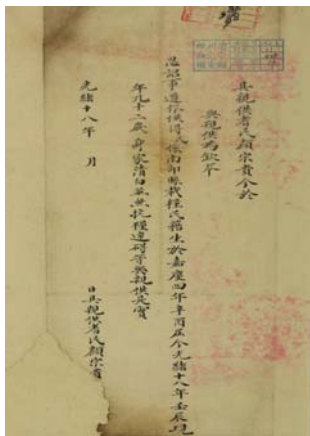 具親供耆民顏宗貴今於
與親供為欽奉
恩詔事遵依供得民係南部縣載糧民籍生於嘉慶四年辛酉屆今光緒十八年壬辰現
年九十二歲身家清白並無抗糧違碍等與親供是實
光緒十八年 月 日具親供耆民顏宗貴